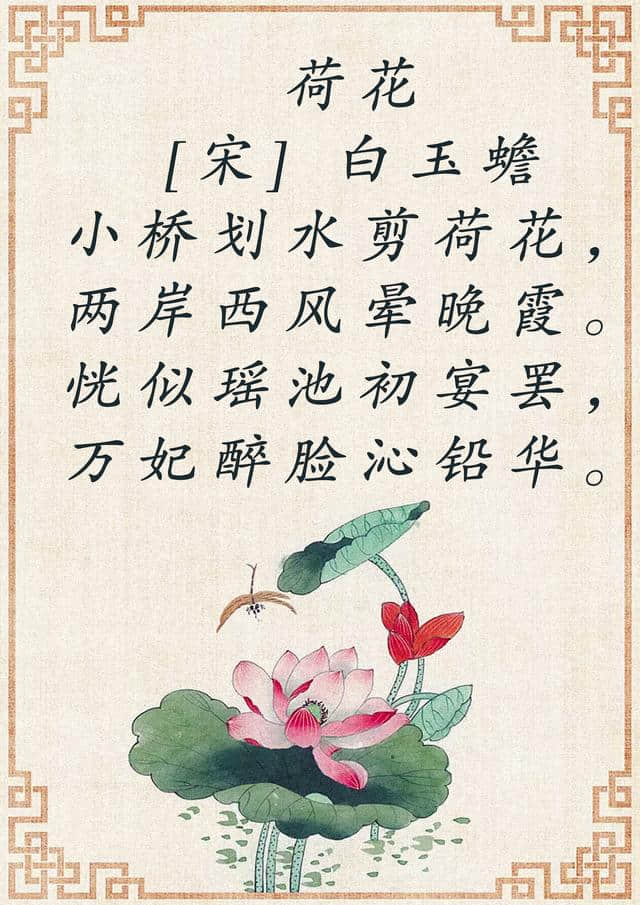 荷花
[宋] 白玉蟾
小桥划水剪荷花，
两岸西风晕晚霞。
恍似瑶池初宴罢，
万妃醉脸沁铅华。